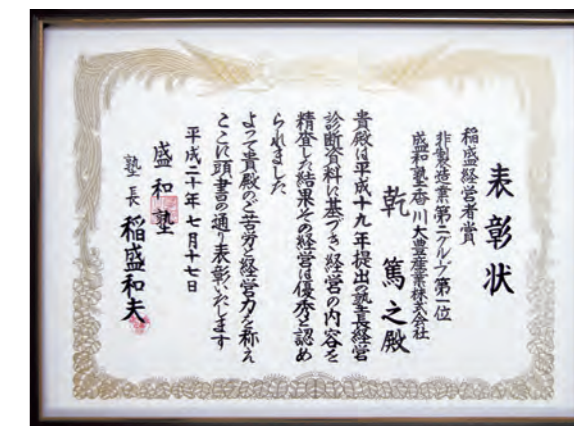 表彰状
稲盛経営者賞
非製造業第二グループ第一位
盛和塾香川大豊産業株式会社
乾 篤之殿
貴殿は平成十九年提出の塾長経営
診断資料に基づき経営の内容を
精査した結果その経営は優秀と認め
られました
よって貴殿のご苦労と経営力を称え
ここに頭書の通り表彰いたします
平成二十年七月十七日
盛和塾
塾長 稲盛和夫